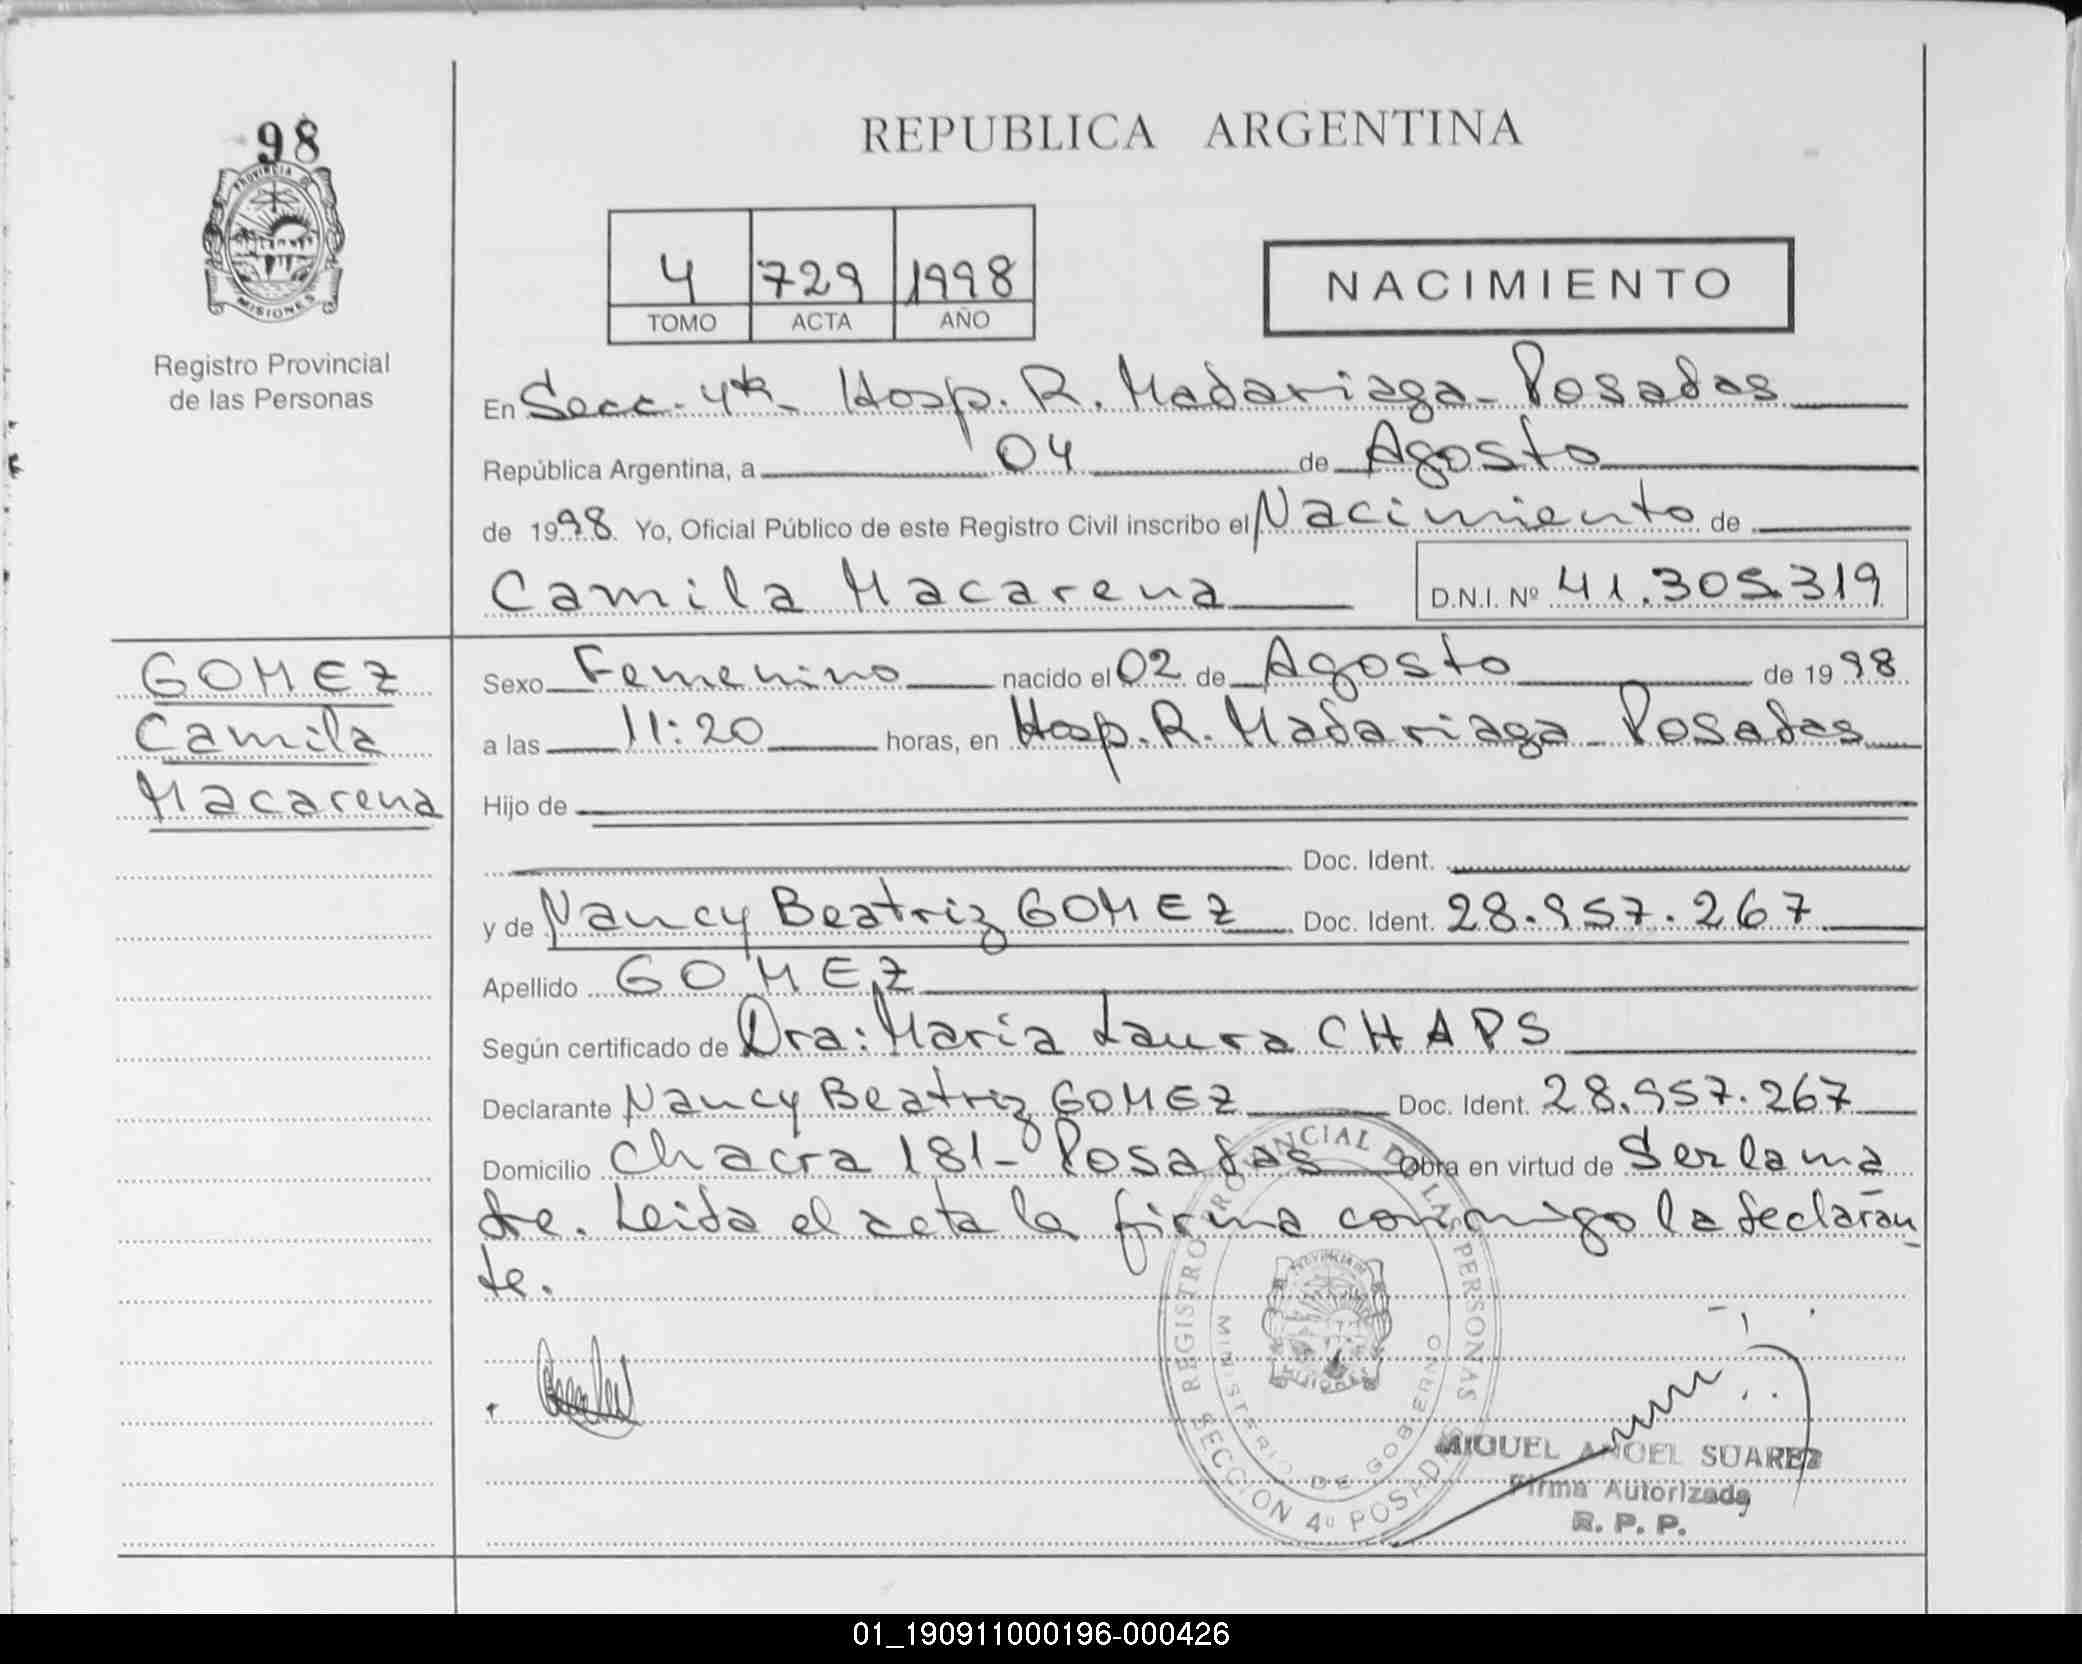 98
PROVINCIA DE
MISIONES
Registro Provincial
de las Personas
REPUBLICA ARGENTINA
4 729 1998
TOMO ACTA AÑO
NACIMIENTO
En Secc. 4ta Hosp. R. Madariaga - Posadas
República Argentina, a 04 de Agosto
de 1998. Yo, Oficial Público de este Registro Civil inscribo el Nacimiento de
Camila Macarena D.N.I. Nº 41.305.319
GOMEZ
Camila
Macarena
Sexo Femenino nacido el 02 de Agosto de 1998
a las 11:20 horas, en Hosp. R. Madariaga - Posadas
Hijo de
Doc. Ident.
y de Nancy Beatriz GOMEZ Doc. Ident. 28.957.267
Apellido GOMEZ
Según certificado de Dra: María Laura CHAPS
Declarante Nancy Beatriz GOMEZ Doc. Ident. 28.957.267
Domicilio Chacra 181 - Posadas Obra en virtud de Ser la ma
dre. Leida el acta la firma conmigo la declaran
te.
REGISTRO PROVINCIAL DE LAS PERSONAS
MINISTERIO DE GOBIERNO
SECCION 4º POSADAS
MIGUEL ANGEL SUAREZ
Firma Autorizada
R. P. P.
01_190911000196-000426